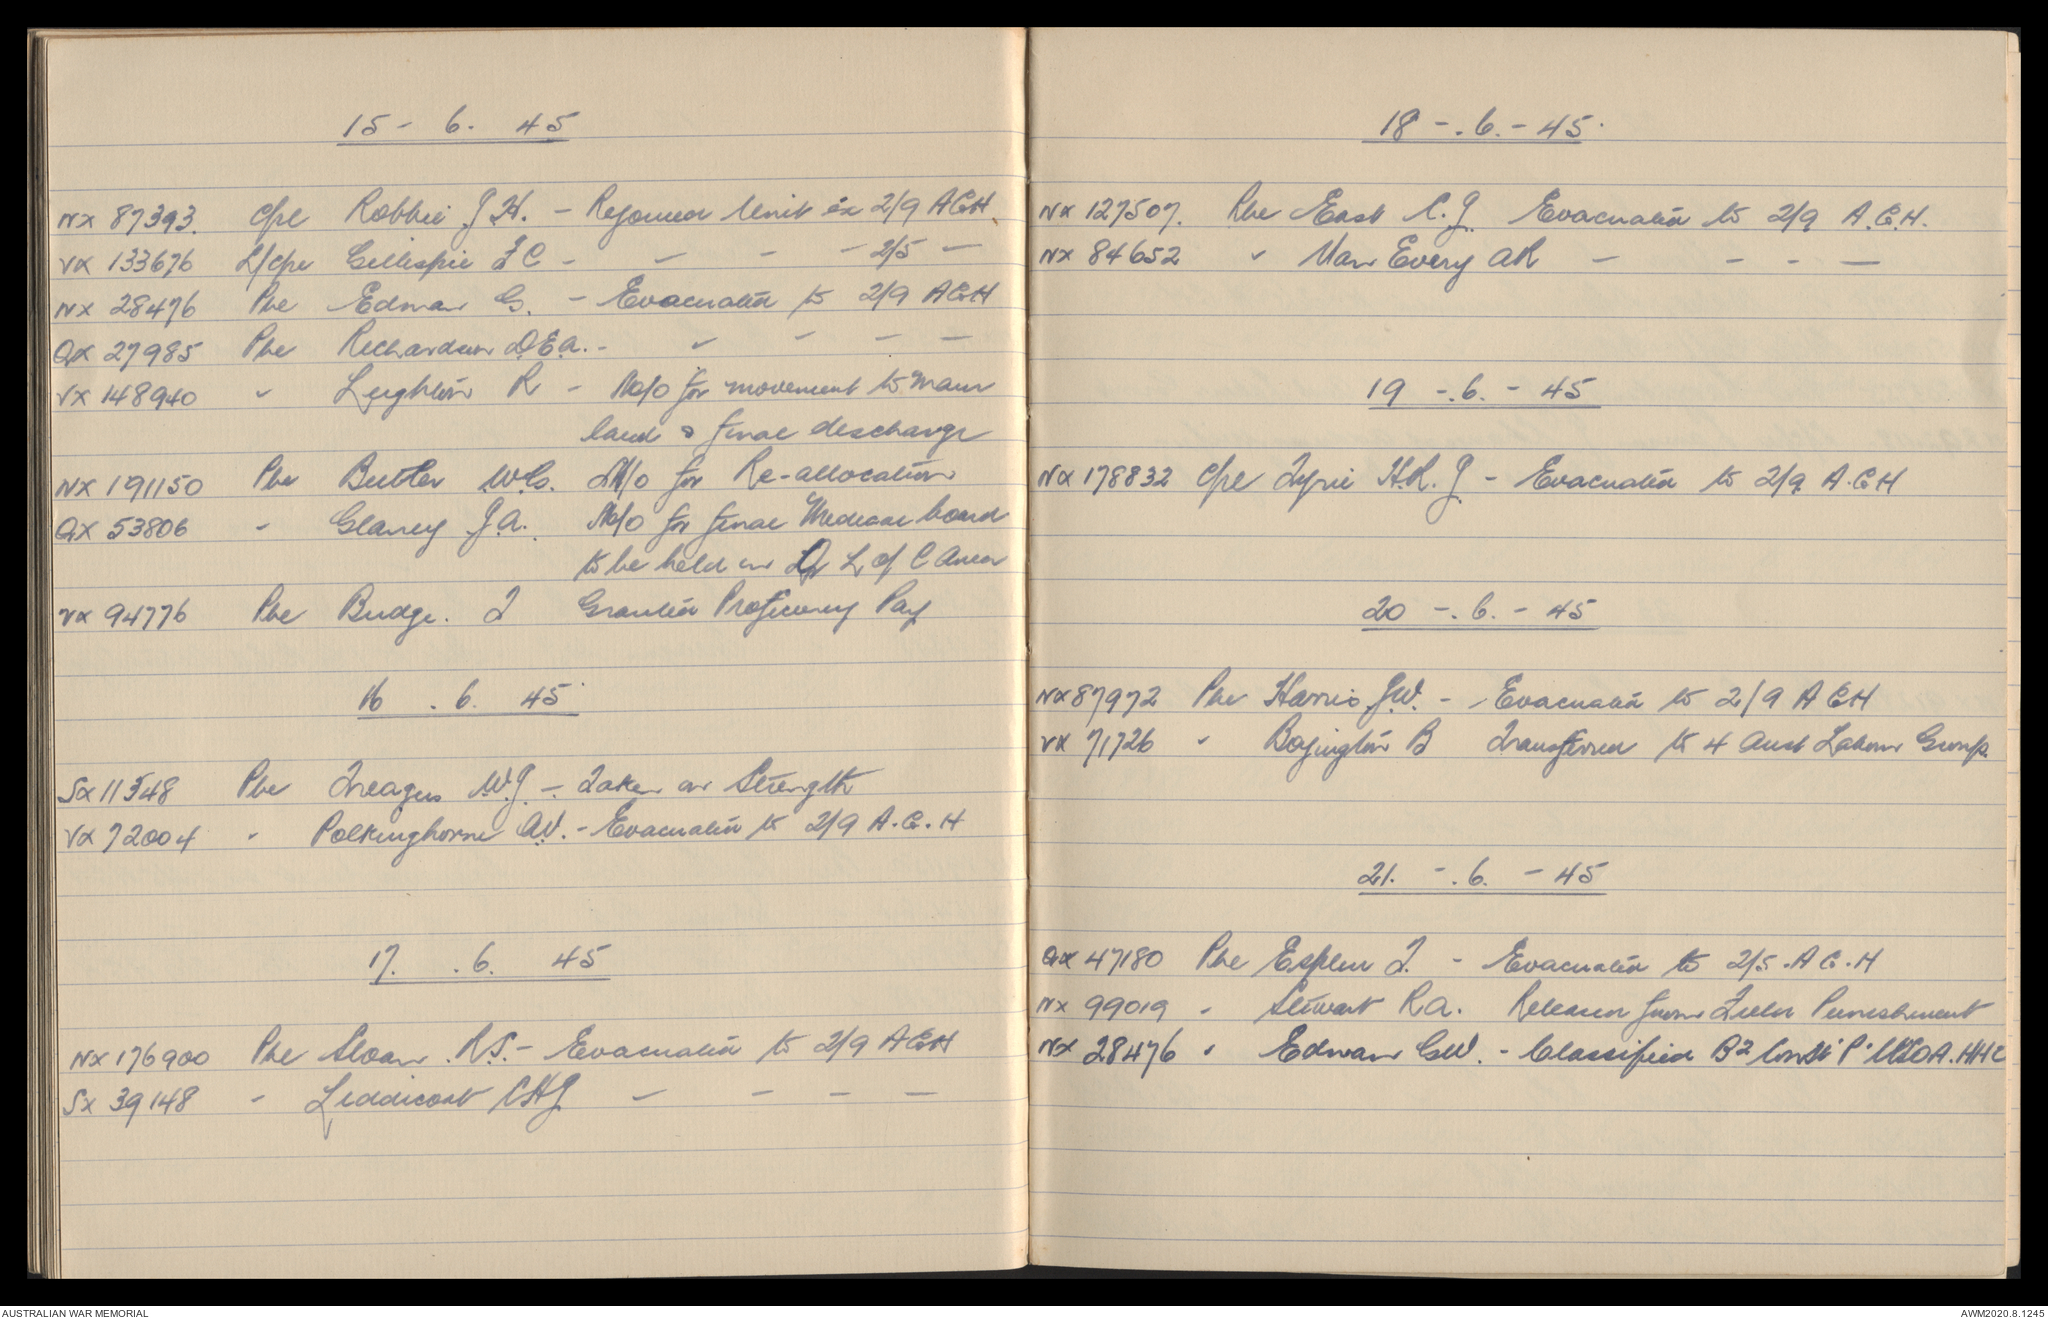 15 - 6. 45
NX 87393. Cpl Robbie J.H. - Rejoined Unit ex 2/9 AGH
VX 133676 L/Cpl Gillespie F C - - - - 2/5 -
NX 28476 Pte Edman G. - Evacuated to 2/9 AGH
QX 27985 Pte Richardson D.E.A. - " - - -
VX 148940 " Leighton R - M/O for movement to main
land & final discharge
NX 191150 Pte Butler W.G. M/O for Re-allocation
QX 53806 " Glaney J.A. M/O for final Medical board
to be held in Q L of C Area
VX 94776 Pte Budge. J Granted Proficiency Pay
16 . 6. 45
SX 11548 Pte Treagus W.J - Taken on Strength
VX 72004 " Polkinghorne A.V. - Evacuated to 2/9 A.G.H
17. . 6. 45
NX 176900 Pte Sloan. R.S. - Evacuated to 2/9 AGH
SX 39148 " Liddicoat C H J - - - -
18 - . 6. - 45.
NX 127507. Pte East C. J. Evacuated to 2/9 A.G.H.
NX 84652 " Van Every A R - - - -
19 - . 6. - 45
NX 178832 Cpl Tyrie H.R. J - Evacuated to 2/9 A.G H
20 - . 6. - 45
NX 87972 Pte Harris J.W. - Evacuated to 2/9 A G H
VX 71726 " Boyington B Transferred to 4 Aust Labour Group.
21. - . 6. - 45
QX 47180 Pte Esplin J. - Evacuated to 2/5. A G. H
NX 99019 " Stewart R A. Released from Field Punishment
NX 28476 " Edman G.W. - Classified B2
AUSTRALIAN WAR MEMORIAL
AWM2020.8.1245